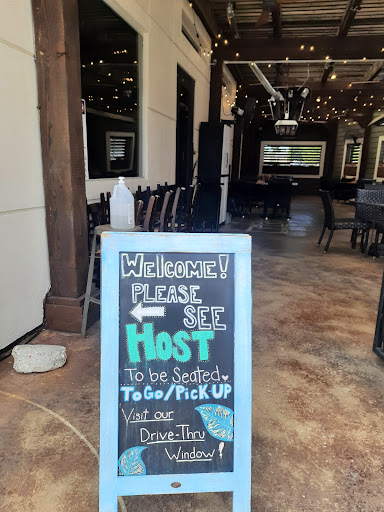 Welcome!
PLEASE
SEE
HOST
To be Seated
ToGo/PickUP
Visit our
Drive-Thru
Window!